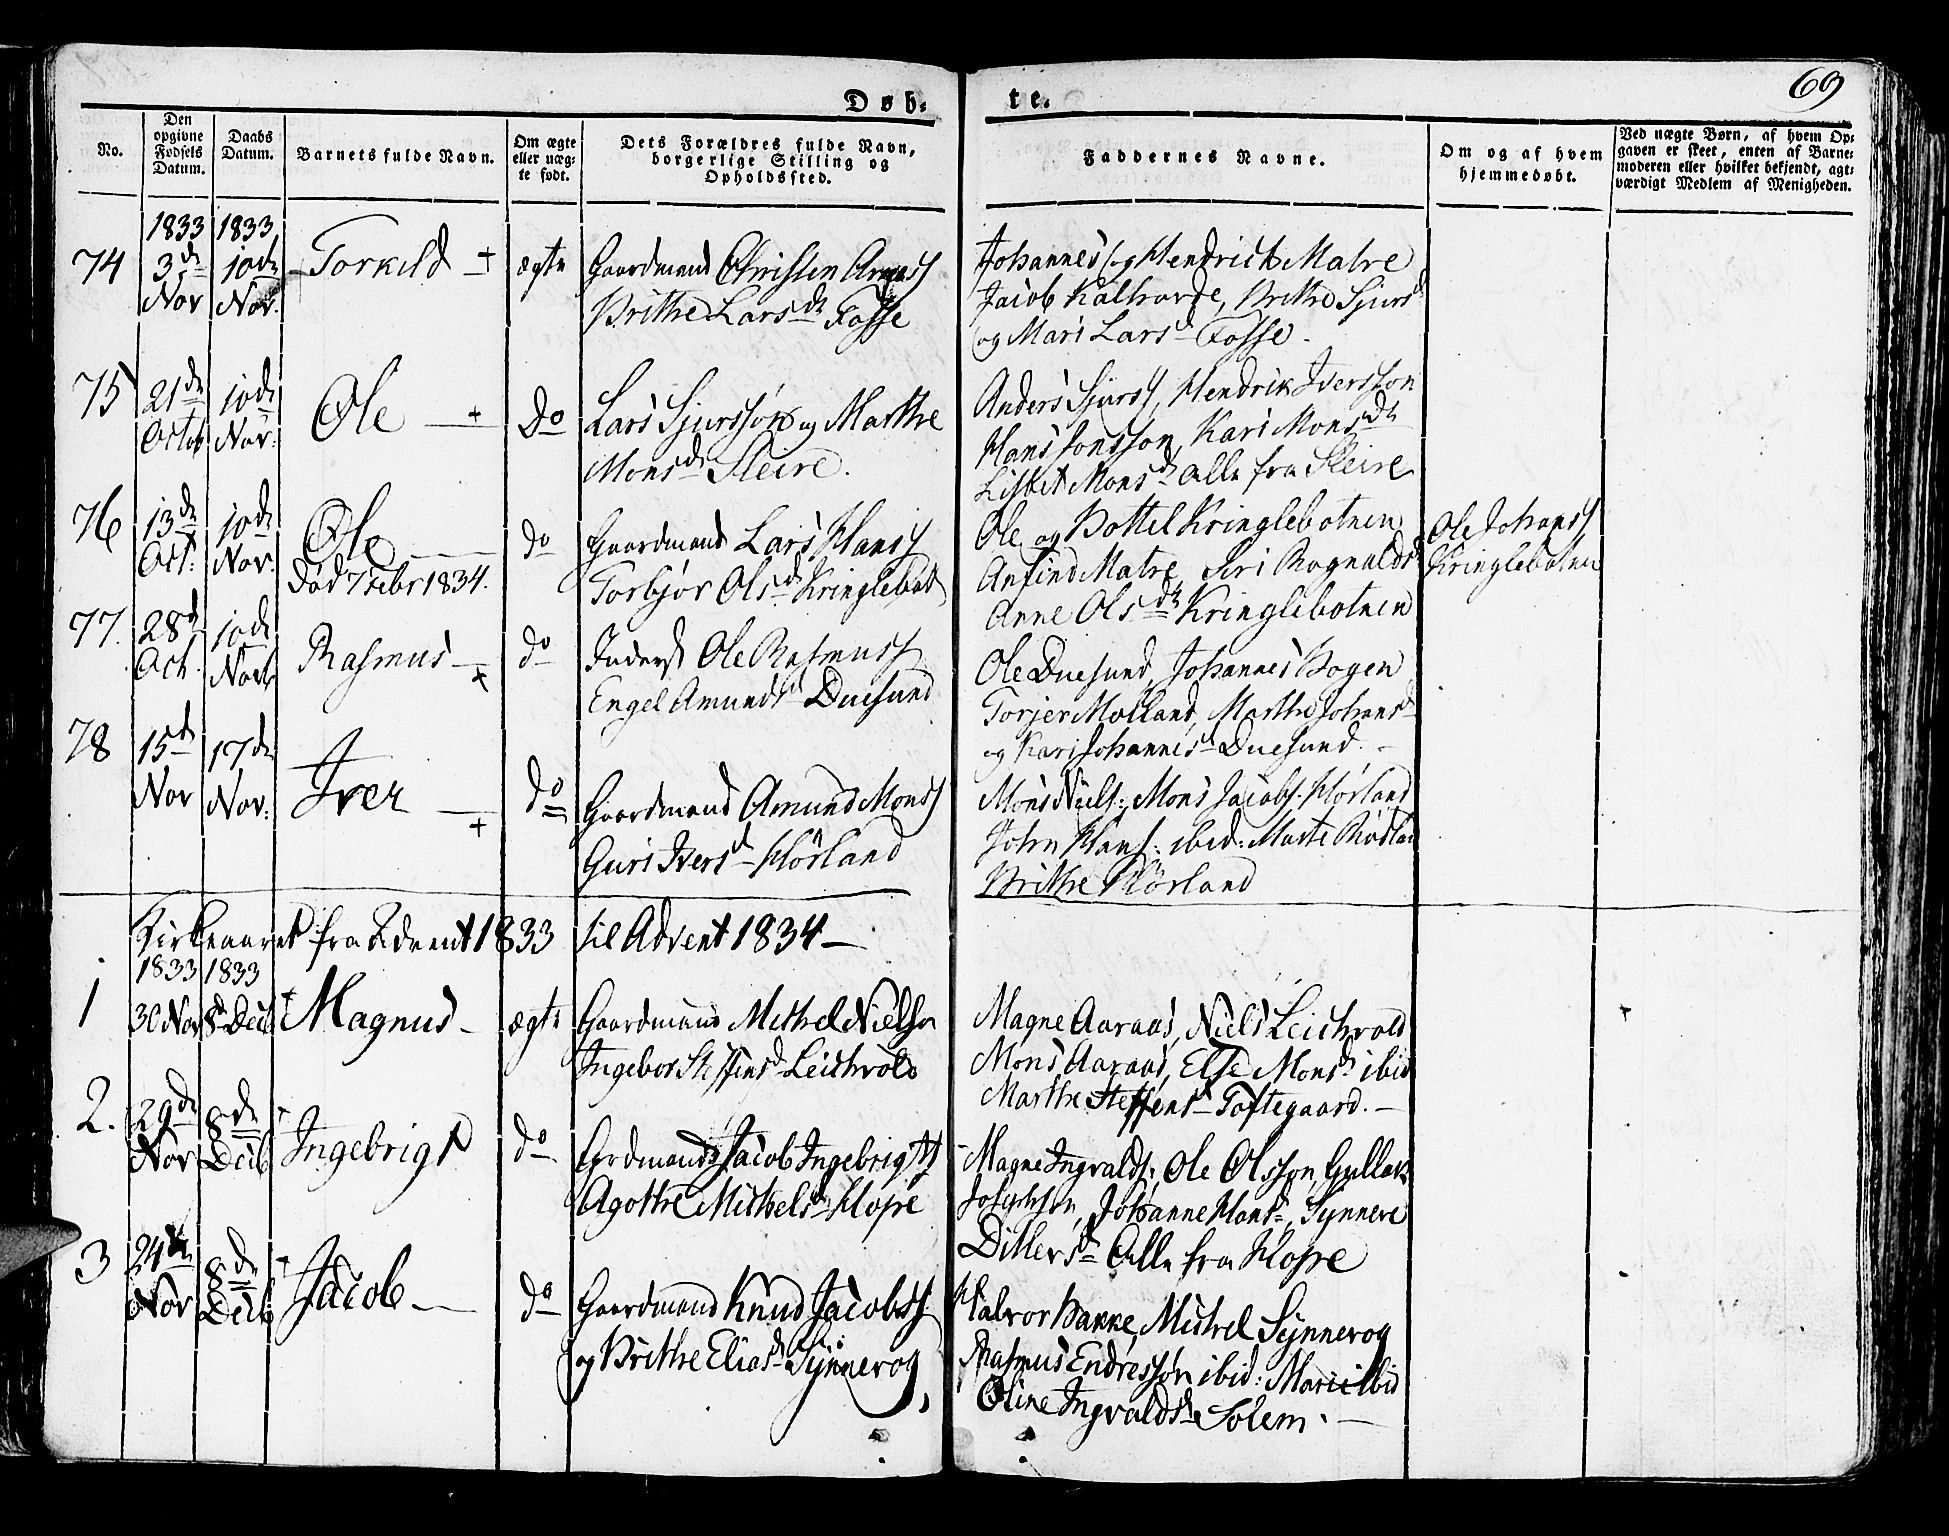 69
Døb-
te.
No.
Den opgivne Fødsels Datum.
Daabs Datum.
Barnets fulde Navn.
Om ægte eller uæg- te født.
Dets Forældres fulde Navn, borgerlige Stilling og Opholdssted.
Faddernes Navne.
Om og af hvem hjemmedøbt.
Ved uægte Børn, af hvem Op- gaven er skeet, enten af Barne- moderen eller hvilket bekjendt, agt- værdigt Medlem af Menigheden.
1833 1833
74 3de Nov 10de Nov. Torkild + ægte
Gaardmand Christen Arness
Brithe Larsd Fosse
Johannes og Hendrich Matre
Jacob Kalhovde, Brithe Sjursd
og Mari Larsd Fosse.
75 21de Octob 10de Nov: Ole + Do
Lars Sjursson og Marthe
Monsd Sleire.
Anders Sjurss, Hendrik Iversson
Hans Jonsson, Kari Monsdt
Lisbet Monsd alle fra Sleire
76 13de Oct: 10de Nov: Ole do
Død 7 Febr 1834.
Gaardmand Lars Hanss
Torbjør Olsd Kringlebot
Ole og Bottel Kringlebotnen
Anfind Matre, Siri Rognaldsd
Anne Olsdt Kringlebotnen
Ole Johanss
Kringlebotnen
77. 28d Oct. 10de Novb Rasmus + do
Inderst Ole Rasmuss
Engel Amundsd Duesund
Ole Duesund, Johannes Bogen
Torjer Molland, Marthe Johansd
og Kari Johannesd Duesund.
78 15d Nov 17de Nov: Iver + do
Gaardmand Amund Monss
Guri Iversd Hörland
Mons Niels:, Mons Jacobs. Hörland
John Hans: ibid: Marte
Brithe Hörland
Kirkeaaret fra Advent 1833 til Advent 1834
1833 1833
1 30 Nov 8d Decb Magnus ægte
Gaardmand Mikkel Nielson
Ingebor Steffensd Leichvold
Magne Aaraas, Niels Leichvold
Mons Aaraas, Else Monsd ibid
Marthe Steffensd Toftegaard.
2. 29de Nov 8de Decb Ingebrigt do
Grdmand Jacob Ingebrigts
Agothe Mikkelsd Hope
Magne Ingvalds:, Ole Olsson, Gullak
Johanne Hansd, Synneve
Ditlevsd alle fra Hope
3 24de Nov 8de Decb Jacob do
Gaardmand Knud Jacobss
og Brithe Eliasd Synnevog
Halvor Bakke, Mikkel Synnevog
Rasmus Endressøn ibid: Mari ibid
Oline Ingvaldsd Solem.